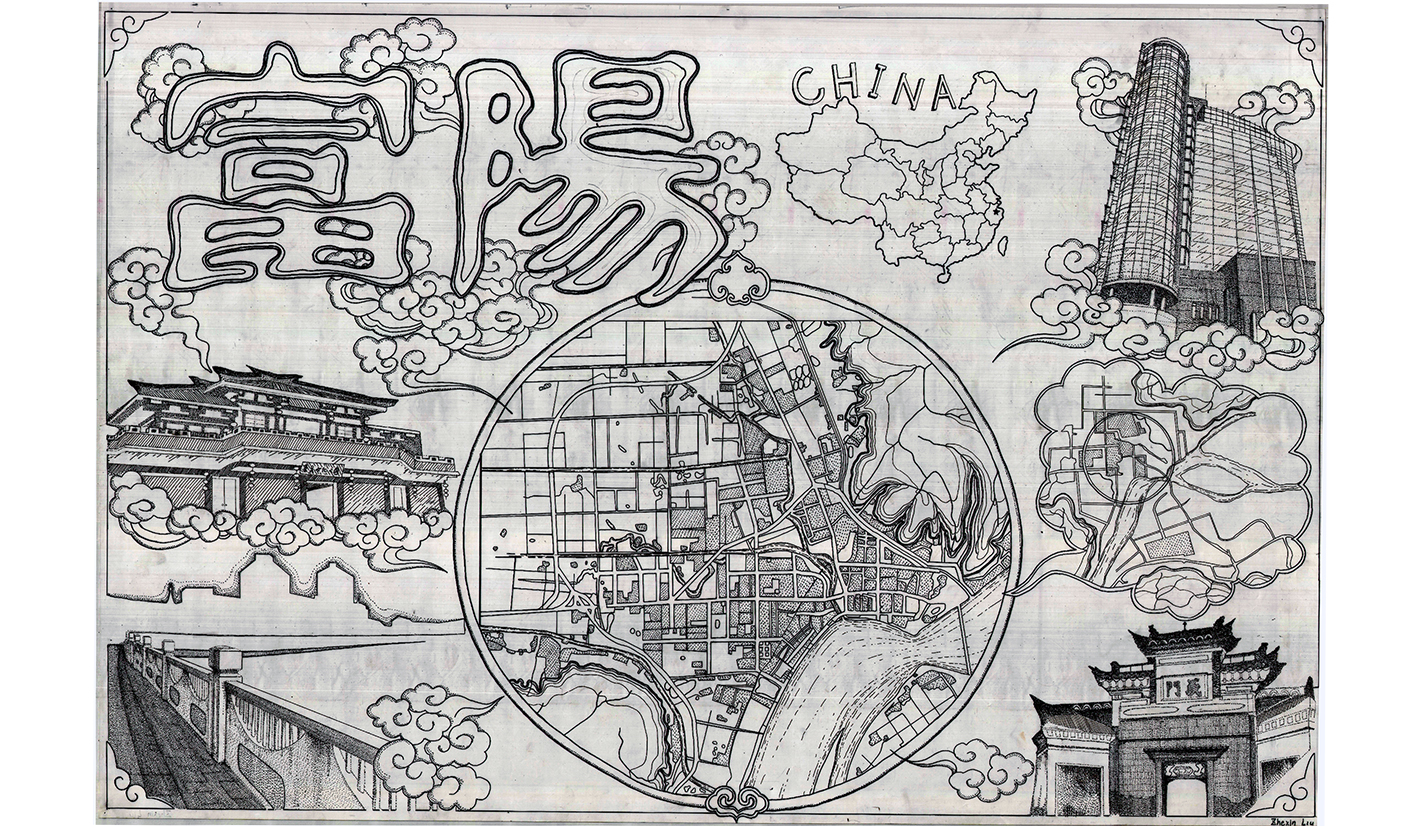 富陽
CHINA
義門
Zhexin Liu